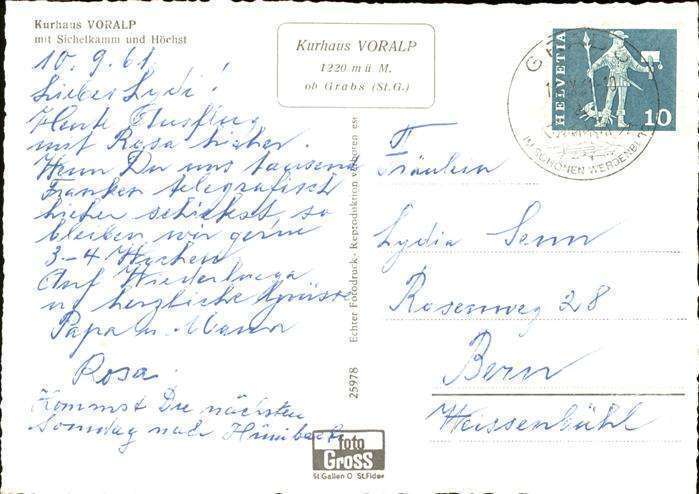 Kurhaus VORALP
mit Sichelkamm und Höchst
Kurhaus VORALP
1220 m ü M.
ob Grabs (St.G.)
HELVETIA
10
IM SCHÖNEN WERDENBERG
10.9.61
Liebes Lydi!
Heute Ausflug
mit Rosa hieher.
Wenn Du uns tausend
Franken telegrafisch
hieher schickst so
bleiben wir gerne
3-4 Wochen
Auf Wiederluega
u herzliche Grüsse
Papa u. Mama
Rosa.
Kommst Du nächsten
Sonntag nach Hünibach
Echter Fotodruck - Reproduktion verboten
25978
foto
Gross
St.Gallen O St.Fiden
Fräulein
Lydia Senn
Rosenweg 28
Bern
Weissenbühl